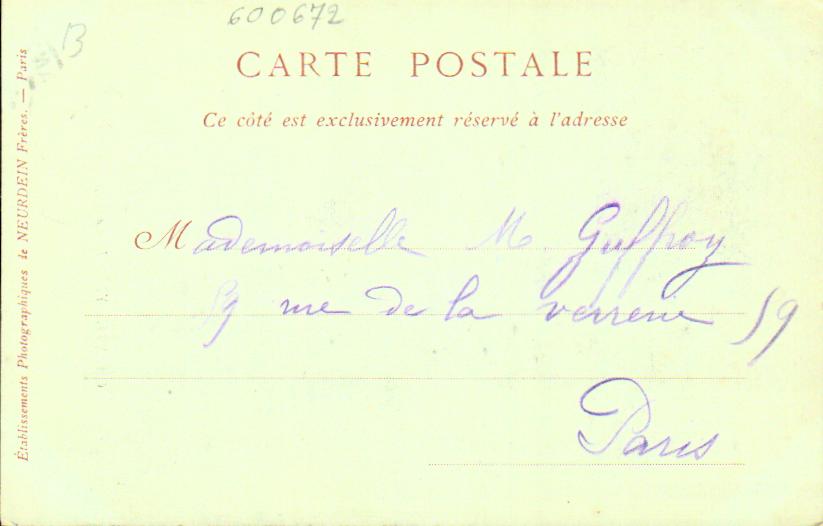 600672
B
CARTE POSTALE
Ce côté est exclusivement réservé à l'adresse
Mademoiselle M. Guffroy
59 rue de la verrerie 59
Paris
Établissements Photographiques de NEURDEIN Frères. — Paris